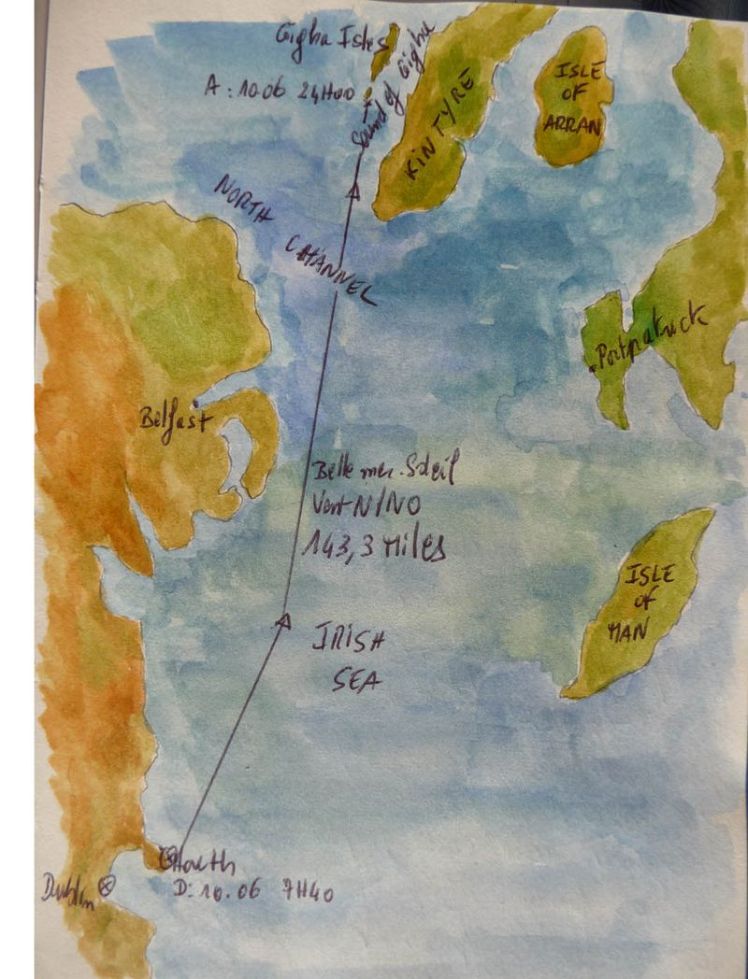 Gigha Isles
A : 10.06 24H00
Sound of Gigha
KINTYRE
ISLE
OF
ARRAN
NORTH
CHANNEL
Portpatrick
Belfast
Belle mer. Soleil
Vent N/NO
143,3 Miles
ISLE
OF
MAN
IRISH
SEA
Howth
D: 10.06 7H40
Dublin